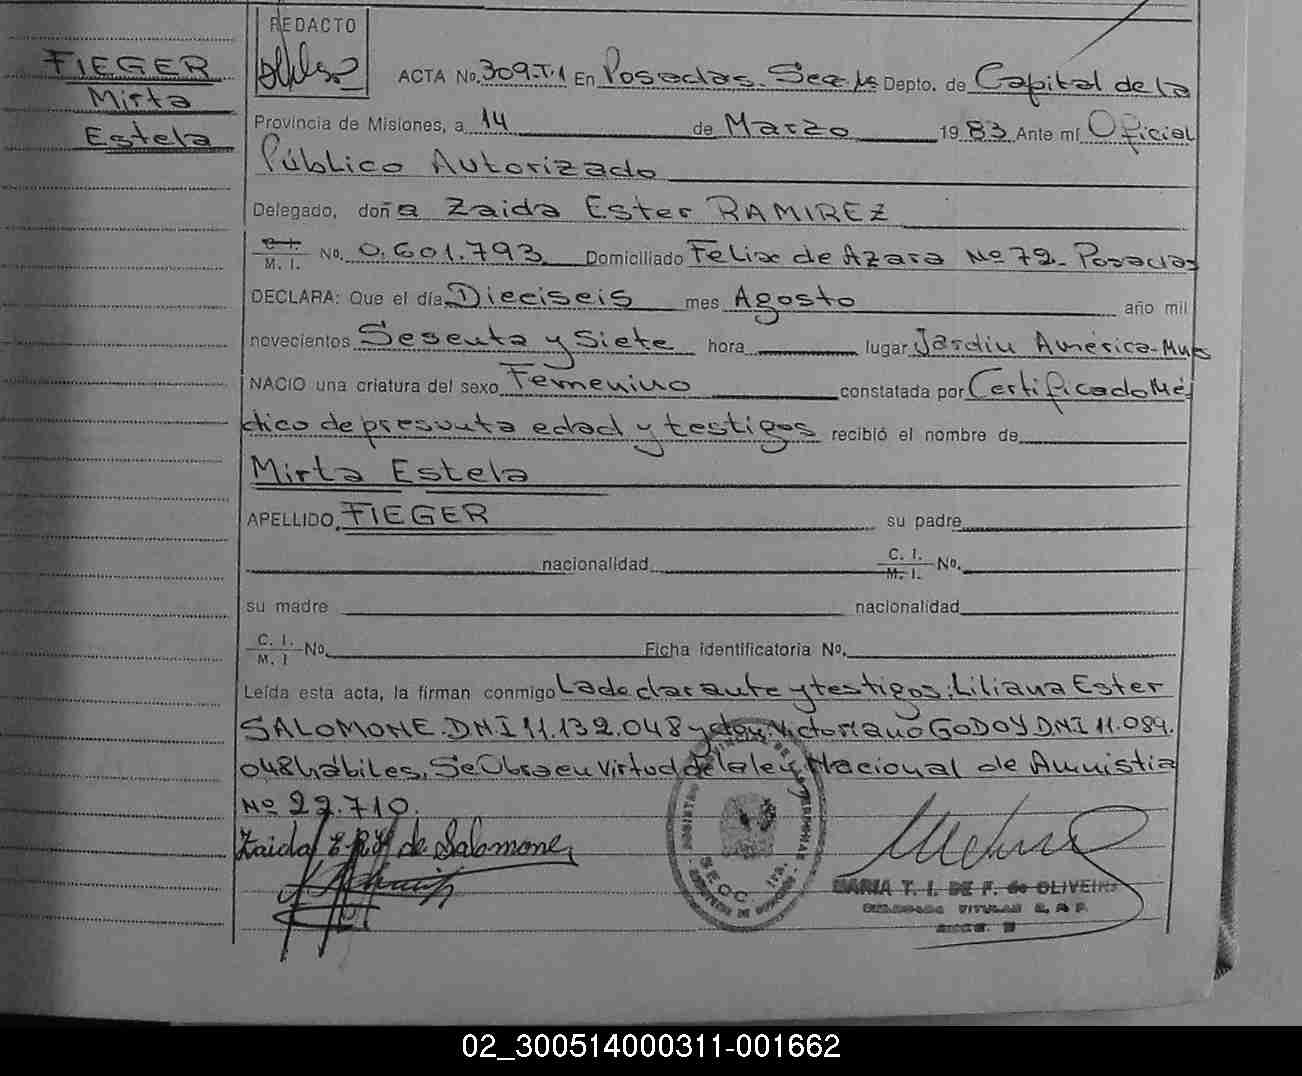 FIEGER
Mirta
Estela
REDACTO
ACTA No. 309.T.1 En Posadas. Secc. Depto. de Capital de la
Provincia de Misiones, a 14 de Marzo 1983 Ante mí Oficial
Público Autorizado
Delegado, doña Zaida Ester RAMIREZ
C. I. M. I. No. 0.601.793. Domiciliado Felix de Azara Nº 72 - Posadas
DECLARA: Que el día Dieciseis mes Agosto año mil
novecientos Sesenta y Siete hora lugar Jardin América - Mnes
NACIO una criatura del sexo Femenino constatada por Certificado Mé
dico de presunta edad y testigos recibió el nombre de
Mirta Estela
APELLIDO, FIEGER su padre
nacionalidad C. I. M. I. No.
su madre nacionalidad
C. I. M. I No. Ficha identificatoria No.
Leída esta acta, la firman conmigo La declarante y testigos: Liliana Ester
SALOMONE. DNI 11.132.048 y don Victoriano GODOY DNI 11.089.
048 hábiles. Se Obra en Virtud de la ley Nacional de Amnistia
Nº 22.710.
Zaida E. R. de Salomone
MARIA T. I. DE F. de OLIVEIRA
02_300514000311-001662